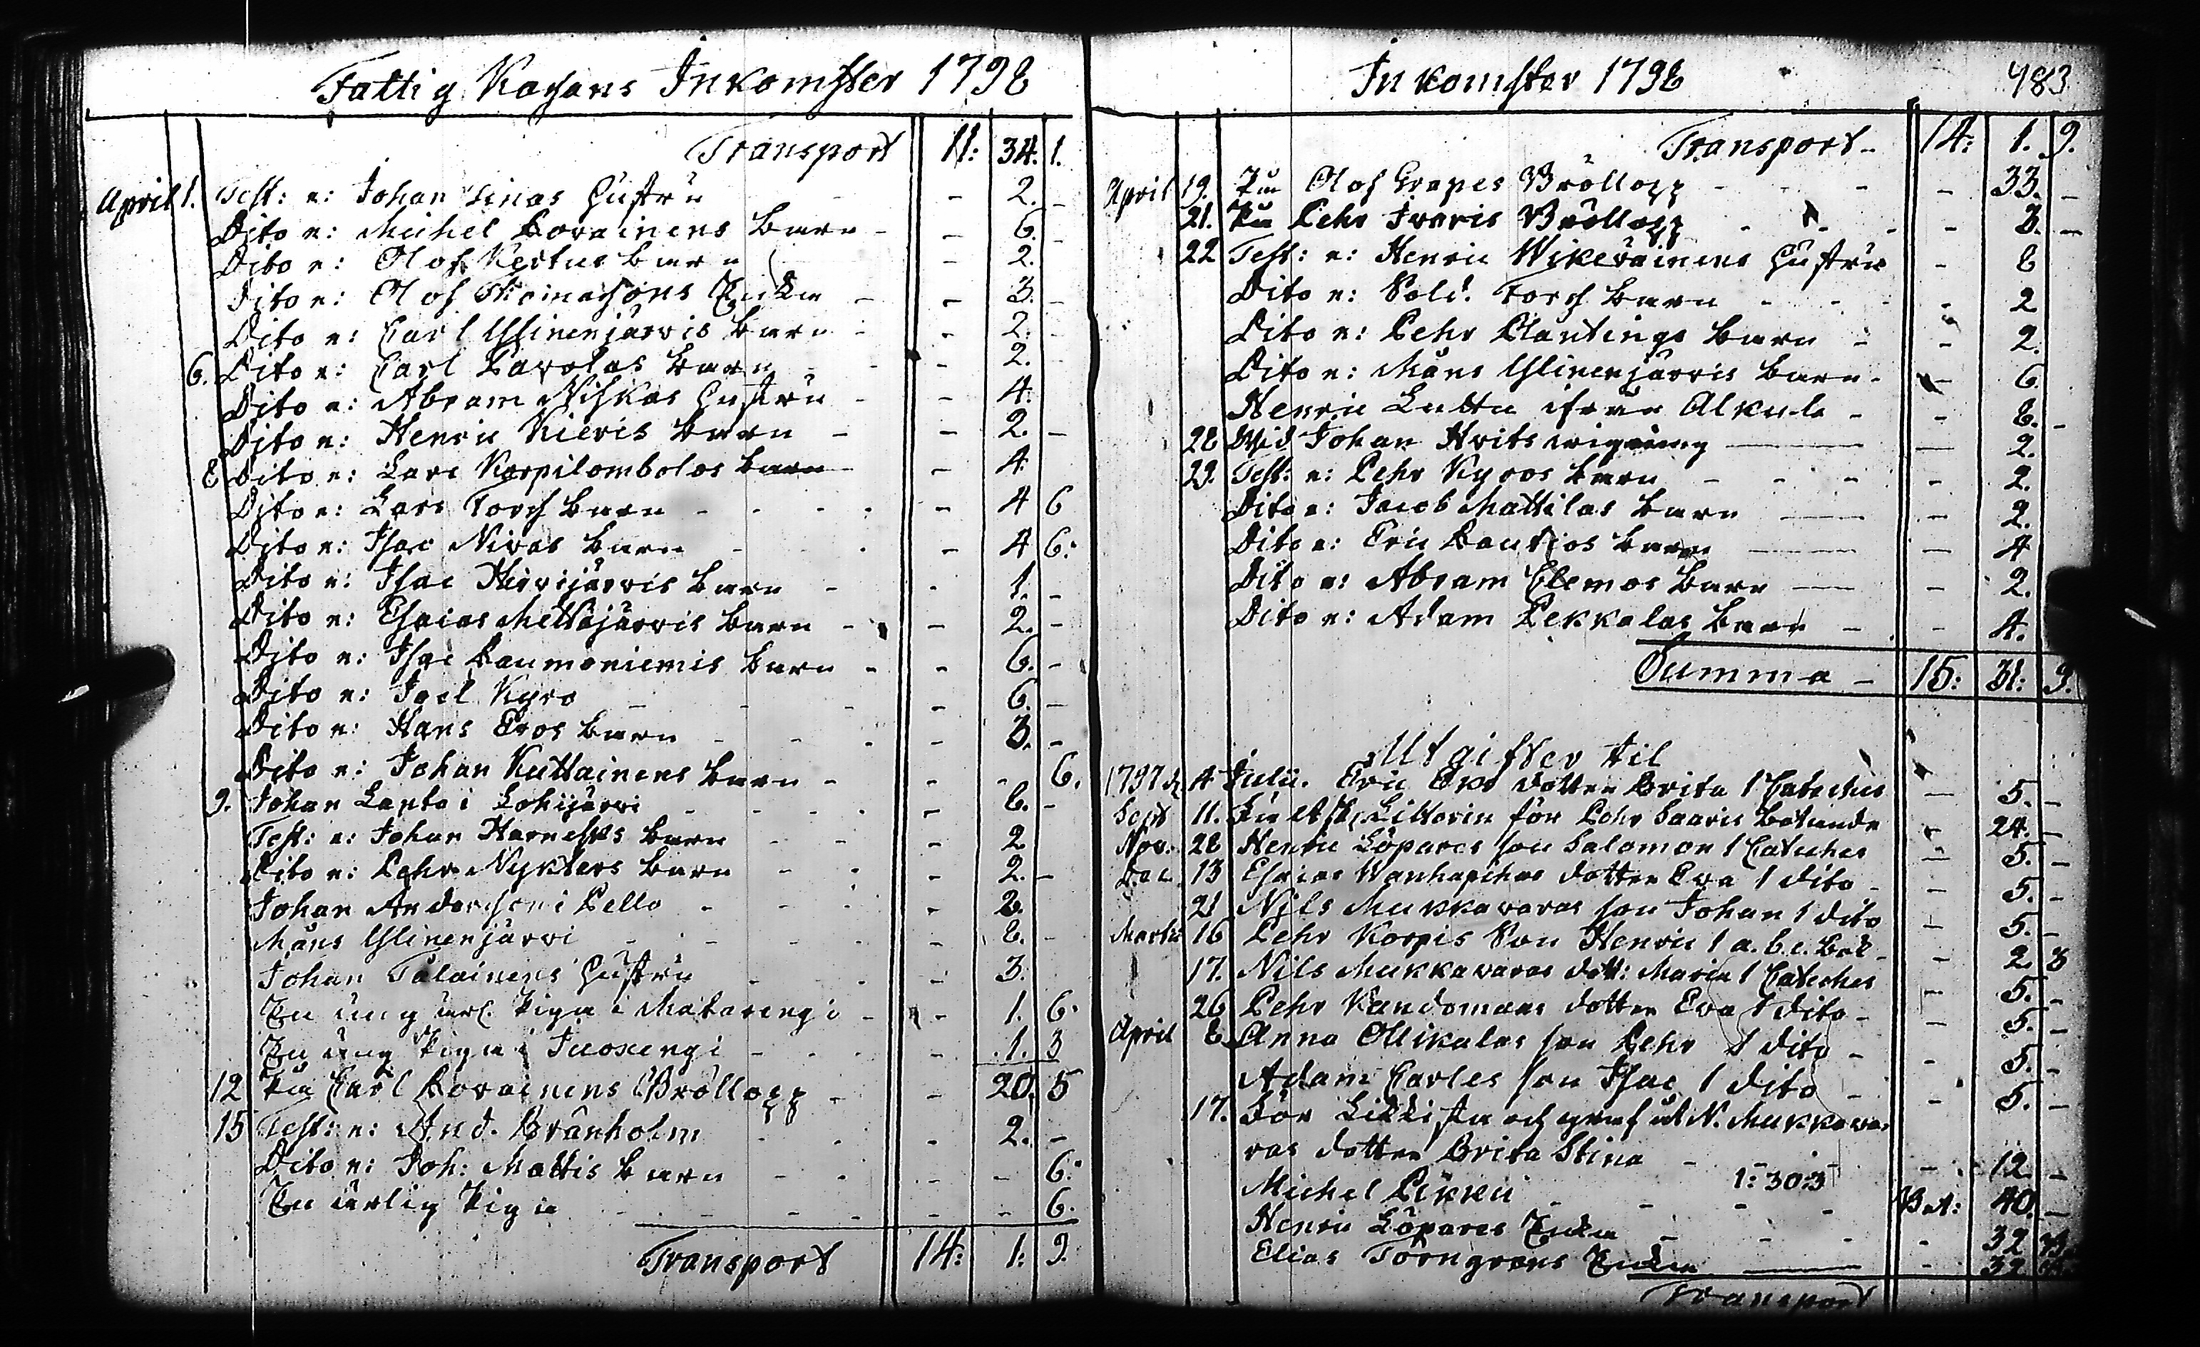 Fattig Kassans Inkomster 1798
Transport 11: 34. 1.
April 1. Test: e: Johan Linas Hustru - 2. -
Dito e: Michel Rovainens barn - 6. -
Dito e: Olof Kertus barn - 2.
Dito e: Olof Thomassons Enka - 3. -
Dito e: Carl Ylinenjärvis barn - 2. -
6. Dito e: Carl Lavolas barn - 2.
Dito e: Abram Niskas Hustru - 4.
Dito e: Henric Kieris barn - 2. -
8 Dito e: Lars Korpilombolos barn - 4
Dito e: Lars Torss barn - 4 6
Dito e: Isac Nivas barn - 4 6.
Dito e: Isac Hirvijärvis barn - 1. -
Dito e: Esaias Mettäjärvis barn - 2. -
Dito e: Isac Raumoniemis barn - 6. -
Dito e: Joel Kyro - 6. -
Dito e: Hans Eros barn - 3. -
Dito e: Johan Kuttainens barn - - 6.
9. Johan Lanta i Lohijärvi - 8. -
Test: e: Johan Harnesks barn - 2
Dito e: Pehr Nykters barn - 2. -
Johan Andersson i Pello - 8.
Måns Ylinenjärvi - 8. -
Johan Talainens Hustru - 3.
En ung ärl. Piga i Matarengi - 1. 6.
En ung Piga i Juoxengi - 1. 3
12 På Carl Rovainens Bröllopp - 20. 5
15 Test: e: And. Brånholm - 2. -
Dito e: Joh: Mattis barn - - 6.
En ärlig Piga - - 6.
Transport 14: 1. 9.
Inkomster 1798 483
Transport - 14: 1. 9.
April 19. På Olof Grapes Bröllopp - 33. -
21. På Pehr Ivaris Bröllopp - 3. -
22 Test: e: Henric Wikeväinens Hustru - 8
Dito e: Sold. Torss barn - 2
Dito e: Pehr Plantings barn - 2.
Dito e: Måns Ylinenjärvis barn - 6.
Henric Lutta ifrån Alkula - 8. -
28 Wid Johan Hvits wigning - 2.
29. Test: e: Pehr Kyros barn - 2.
Dito e: Jacob Mattilas barn - 2.
Dito e: Eric Rautios barn - 4
Dito e: Abram Clemos barn - 2.
Dito e: Adam Pekkalas barn - 4.
Summa - 15: 31: 9.
Utgifter til
1797 d. 4 Julii. Eric Ers dotter Brita 1 Cateches - 5. -
Sept 11. Littorin för Pehr Saaris - 24. -
Nov. 28 Henric Löpares son Salomon 1 Cateches - 5. -
Dec. 13 Esaias Wanhapihas dotter Eva 1 dito - 5. -
21 Nils Mukkavaras son Johan 1 dito - 5. -
Martii 16 Pehr Korpis Son Henric 1 a.b.c. bok - 2 3
17. Nils Mukkavaras dott: Maria 1 Cateches - 5. -
26 Pehr Kandomaas dotter Eva 1 dito - 5. -
April 8. Anna Ollikalas son Pehr 1 dito - 5. -
Adam Carles son Isac 1 dito - 5. -
17. För Likkista och graf åt N. Mukkava-
ras dotter Brita Stina - 12 -
1: 30 3
Michel Pikku - Bet: 40. -
Henric Löpares Enka - 32
Elias Törngrens Enka - 32
Transport